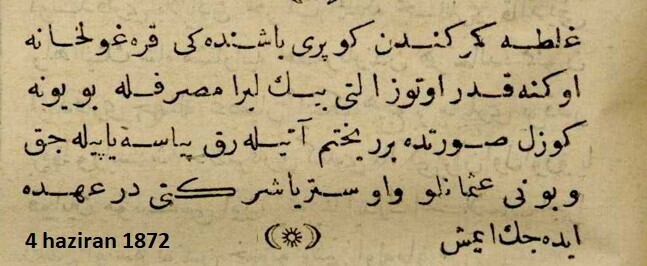 غلطه كمركندن كوپرى باشنده كى قره غولخانه
اوكنه قدر اوتوز التى بيك ليرا مصرفله بويونه
كوزل صورتده بر ريختم آتيله رق پياسه ياپيله جق
و بونى عثمانلو واوستريا شركتى در عهده
ايده جك ايمش
4 haziran 1872